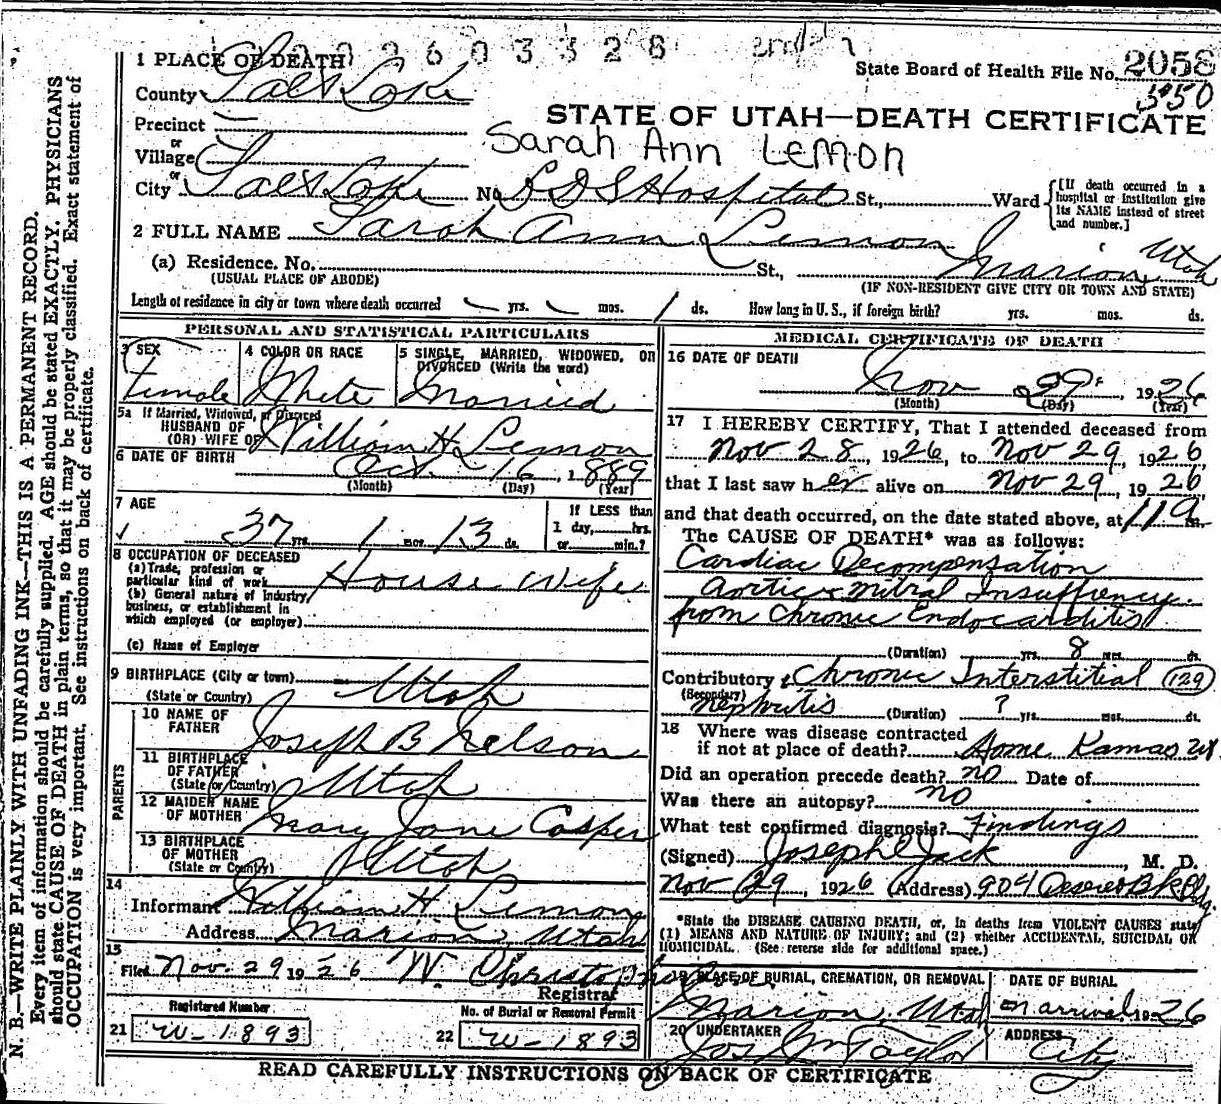 2603328
1 PLACE OF DEATH
State Board of Health File No. 2058
350
County Salt Lake
STATE OF UTAH—DEATH CERTIFICATE
Precinct —
Sarah Ann Lemon
or
Village
or
City Salt Lake No. LDS Hospital St., Ward [If death occurred in a hospital or institution give its NAME instead of street and number.]
2 FULL NAME Sarah Ann Lemon
(a) Residence. No. St., Marion, Utah
(USUAL PLACE OF ABODE) (IF NON-RESIDENT GIVE CITY OR TOWN AND STATE)
Length of residence in city or town where death occurred — yrs. — mos. 1 ds. How long in U. S., if foreign birth? yrs. mos. ds.
N. B.—WRITE PLAINLY WITH UNFADING INK—THIS IS A PERMANENT RECORD.
Every item of information should be carefully supplied. AGE should be stated EXACTLY. PHYSICIANS
should state CAUSE OF DEATH in plain terms, so that it may be properly classified. Exact statement of
OCCUPATION is very important. See instructions on back of certificate.
PERSONAL AND STATISTICAL PARTICULARS
3 SEX
Female
4 COLOR OR RACE
White
5 SINGLE, MARRIED, WIDOWED, OR
DIVORCED (Write the word)
Married
5a If Married, Widowed, or Divorced
HUSBAND OF
(OR) WIFE OF William H. Lemon
6 DATE OF BIRTH
Oct. 16 1889
(Month) (Day) (Year)
7 AGE
37 yrs. 1 mos. 13 ds.
If LESS than
1 day, hrs.
or min.?
8 OCCUPATION OF DECEASED
(a) Trade, profession or
particular kind of work House Wife
(b) General nature of Industry,
business, or establishment in
which employed (or employer)
(c) Name of Employer
9 BIRTHPLACE (City or town)
(State or Country) Utah
PARENTS
10 NAME OF
FATHER Joseph B Nelson
11 BIRTHPLACE
OF FATHER
(State or Country) Utah
12 MAIDEN NAME
OF MOTHER Mary Jane Casper
13 BIRTHPLACE
OF MOTHER
(State or Country) Utah
14
Informant William H. Lemon
Address Marion, Utah
15
Filed Nov. 29 1926 W. Christopherson
Registrar
Registered Number
21 W-1893
No. of Burial or Removal Permit
22 W-1893
MEDICAL CERTIFICATE OF DEATH
16 DATE OF DEATH
Nov 29, 1926
(Month) (Day) (Year)
17 I HEREBY CERTIFY, That I attended deceased from
Nov 28, 1926, to Nov 29, 1926
that I last saw her alive on Nov 29, 1926,
and that death occurred, on the date stated above, at m.
The CAUSE OF DEATH* was as follows:
Cardiac Decompensation
Aortic & Mitral Insuffiency
from Chronic Endocarditis
(Duration) yrs. 8 mos. ds.
Contributory Chronic Interstitial 129
(Secondary) Nephritis (Duration) ? yrs. mos. ds.
18 Where was disease contracted
if not at place of death? Home Kamas Ut.
Did an operation precede death? no Date of
Was there an autopsy? no
What test confirmed diagnosis? Findings
(Signed) Joseph E Jack, M. D.
Nov 29, 1926 (Address) 904 Deseret Bk Bldg.
*State the DISEASE CAUSING DEATH, or, in deaths from VIOLENT CAUSES state
(1) MEANS AND NATURE OF INJURY; and (2) whether ACCIDENTAL, SUICIDAL OR
HOMICIDAL. (See reverse side for additional space.)
19 PLACE OF BURIAL, CREMATION, OR REMOVAL
Marion, Utah
DATE OF BURIAL
on arrival 1926
20 UNDERTAKER
Jos Wm Taylor
ADDRESS
City
READ CAREFULLY INSTRUCTIONS ON BACK OF CERTIFICATE